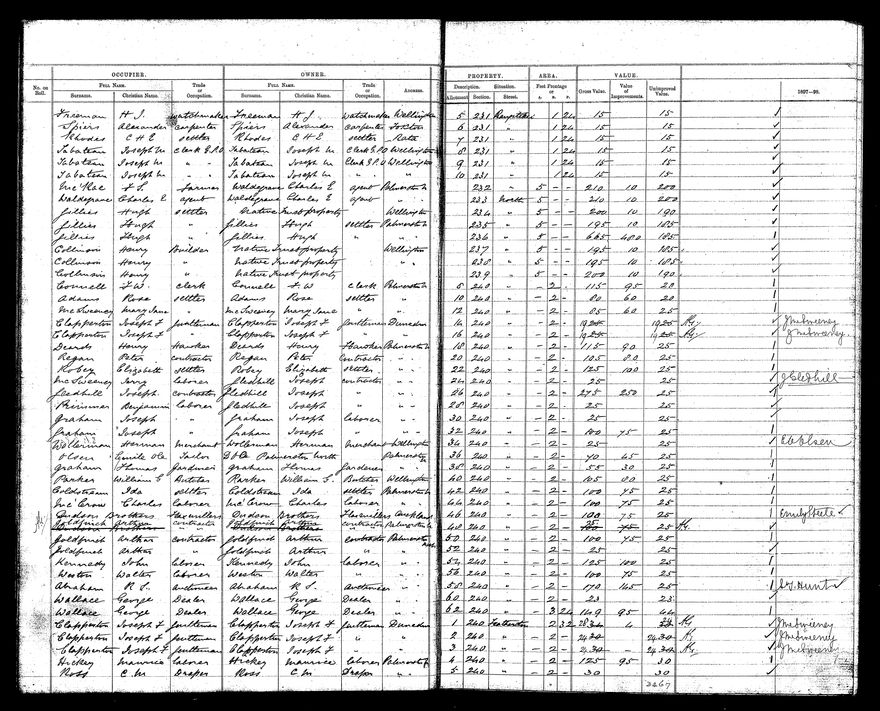 OCCUPIER. OWNER. PROPERTY. AREA. VALUE.
No. on Roll. Full Name. Trade or Occupation. Full Name. Trade or Occupation. Address. Description. Situation. Feet Frontage or Gross Value. Value of Improvements. Unimproved Value. 1897-98.
Surname. Christian Name. Surname. Christian Name. Allotment Section. Street. A. R. P.
Freeman H J. watchmaker Freeman H J. watchmaker Wellington 5 231 1 24 15 15
Spiers Alexander carpenter Spiers Alexander carpenter Foxton 6 231 " 1 24 15 15
Rhodes C H E settler Rhodes C H E settler 7 231 " 1 24 15 15
Tabateau Joseph M clerk G.P.O Tabateau Joseph M Clerk G.P.O Wellington 8 231 " 1 24 15 15
Tabateau Joseph M " " Tabateau Joseph M Clerk G.P.O Wellington 9 231 " 1 24 15 15
Tabateau Joseph M " " Tabateau Joseph M " " " 10 231 " 1 24 15 15
farmer Waldegrave Charles E agent Palmerston N 232 " 5 - - 210 10 200
Waldegrave Charles E agent Waldegrave Charles E agent " 233 North 5 - - 210 10 200
Jillies Hugh settler Native Trust property Wellington 234 " 5 - - 200 10 190
Jillies Hugh " Jillies Hugh settler Palmerston N 235 " 5 - - 195 10 185
Jillies Hugh " Jillies Hugh " " 236 " 5 - - 665 480 185
Collinson Henry Builder Native Trust property Wellington 237 " 5 - - 195 10 185
Collinson Henry " Native Trust property " 238 " 5 - - 195 10 185
Collinson Henry " Native Trust property 239 " 5 - - 200 10 190
Connell F W. clerk Connell F W clerk Palmerston N 8 240 " - 2 - 115 95 20
Adams Rose settler Adams Rose settler " 10 240 " - 2 - 80 60 20
McSweeney Mary Jane " McSweeney Mary Jane " " 12 240 " - 2 - 85 60 25
Clapperton Joseph F gentleman Clapperton Joseph F gentleman Dunedin 14 240 " - 2 - J McSweeney
Clapperton Joseph F " Clapperton Joseph F " " 16 240 " - 2 - J McSweeney
Deerds Henry Hawker Deerds Henry Hawker Palmerston N 18 240 " - 2 - 115 90 25
Regan Peter contractor Regan Peter Contractor " 20 240 " - 2 - 105 80 25
Robey Elizabeth settler Robey Elizabeth settler " 22 240 " - 2 - 125 100 25
McSweeney Terry laborer Gledhill Joseph contractor " 24 240 " - 2 - 25 25 J Gledhill
Gledhill Joseph contractor Gledhill Joseph " " 26 240 " - 2 - 275 250 25
Benjamin laborer Gledhill Joseph " " 28 240 " - 2 - 25 25
Graham Joseph " Graham Joseph laborer " 30 240 " - 2 - 25 25
Graham Joseph " Graham Joseph " " 32 240 " - 2 - 100 75 25
Wollerman Herman Merchant Wollerman Herman Merchant Wellington 34 240 " - 2 - 25 25 Olsen
Olsen Emile Ole Tailor Palmerston North Palmerston N 36 240 " - 2 - 70 45 25
Graham Thomas Gardener Graham Thomas Gardener " 38 240 " - 2 - 55 30 25
Parker William G. Butcher Parker William G. Butcher Wellington 40 240 " - 2 - 105 80 25
Coldstream Ida settler Coldstream Ida settler Palmerston N 42 240 " - 2 - 100 75 25
McCrow Charles laborer McCrow Charles laborer " 44 240 " - 2 - 100 75 25
Brothers Flaxmillers Brothers Flaxmillers Auckland 46 240 " - 2 - 100 75 25 Emily Steele
Goldfinch Arthur contractor Goldfinch Arthur contractor Palmerston N 48 240 " - 2 - 25 25
Goldfinch Arthur contractor Goldfinch Arthur contractor Palmerston North 50 240 " - 2 - 100 75 25
Goldfinch Arthur " Goldfinch Arthur " " 52 240 " - 2 - 25 25
Kennedy John laborer Kennedy John laborer " 54 240 " - 2 - 125 100 25
Weston Walter laborer Weston Walter " " 56 240 " - 2 - 100 75 25
Abraham R S. auctioneer Abraham R S. auctioneer " 58 240 " - 2 - 170 145 25 Hunt
Wallace George Dealer Wallace George Dealer " 60 240 " - 2 - 23 23
Wallace George Dealer Wallace George Dealer " 62 240 " - 3 24 149 95 44
Clapperton Joseph F gentleman Clapperton Joseph F gentleman Dunedin 1 240 Featherston - 2 32 J McSweeney
Clapperton Joseph F gentleman Clapperton Joseph F " " 2 240 " - 2 - 24 30 24 30 J McSweeney
Clapperton Joseph F gentleman Clapperton Joseph F " " 3 240 " - 2 - 24 30 24 30 J McSweeney
Hickey Maurice laborer Hickey Maurice laborer Palmerston N 4 240 " - 2 - 125 95 30
Ross C M Draper Ross C M Draper " 5 240 " - 2 - 30 30
3267